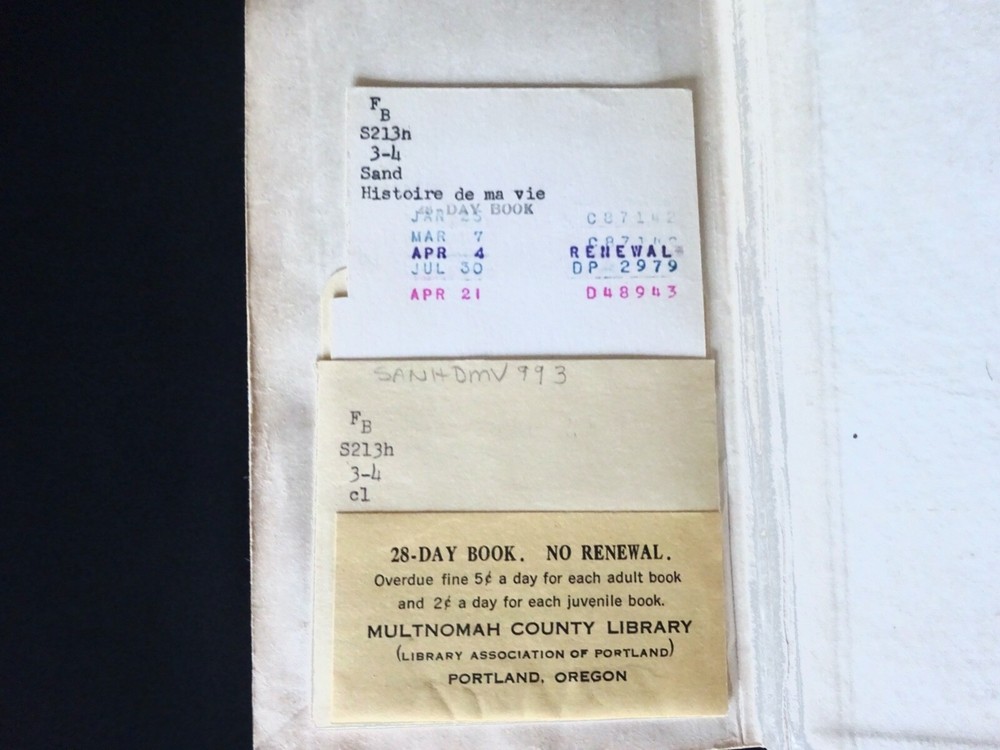 F
B
S213h
3-4
Sand
Histoire de ma vie
28-DAY BOOK
JAN 23 C87142
MAR 7 C87142
APR 4 RENEWAL
JUL 30 DP 2979
APR 21 D48943
SANHDMV 993
F
B
S213h
3-4
c1
28-DAY BOOK. NO RENEWAL.
Overdue fine 5¢ a day for each adult book
and 2¢ a day for each juvenile book.
MULTNOMAH COUNTY LIBRARY
(LIBRARY ASSOCIATION OF PORTLAND)
PORTLAND, OREGON